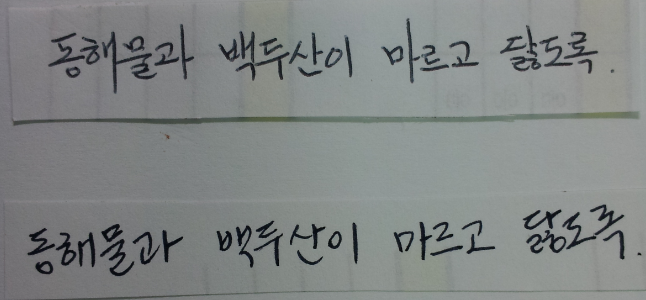 동해물과 백두산이 마르고 닳도록.
동해물과 백두산이 마르고 닳도록.